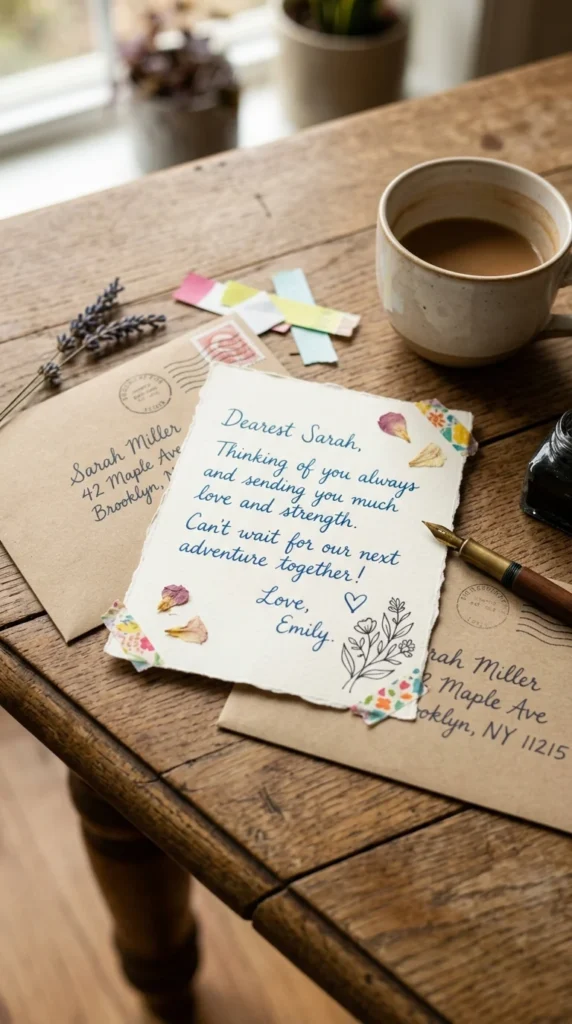 Sarah Miller
42 Maple Ave
Brooklyn,
Dearest Sarah,
Thinking of you always
and sending you much
love and strength.
Can't wait for our next
adventure together!
Love,
Emily.
rah Miller
Maple Ave
oklyn, NY 11215